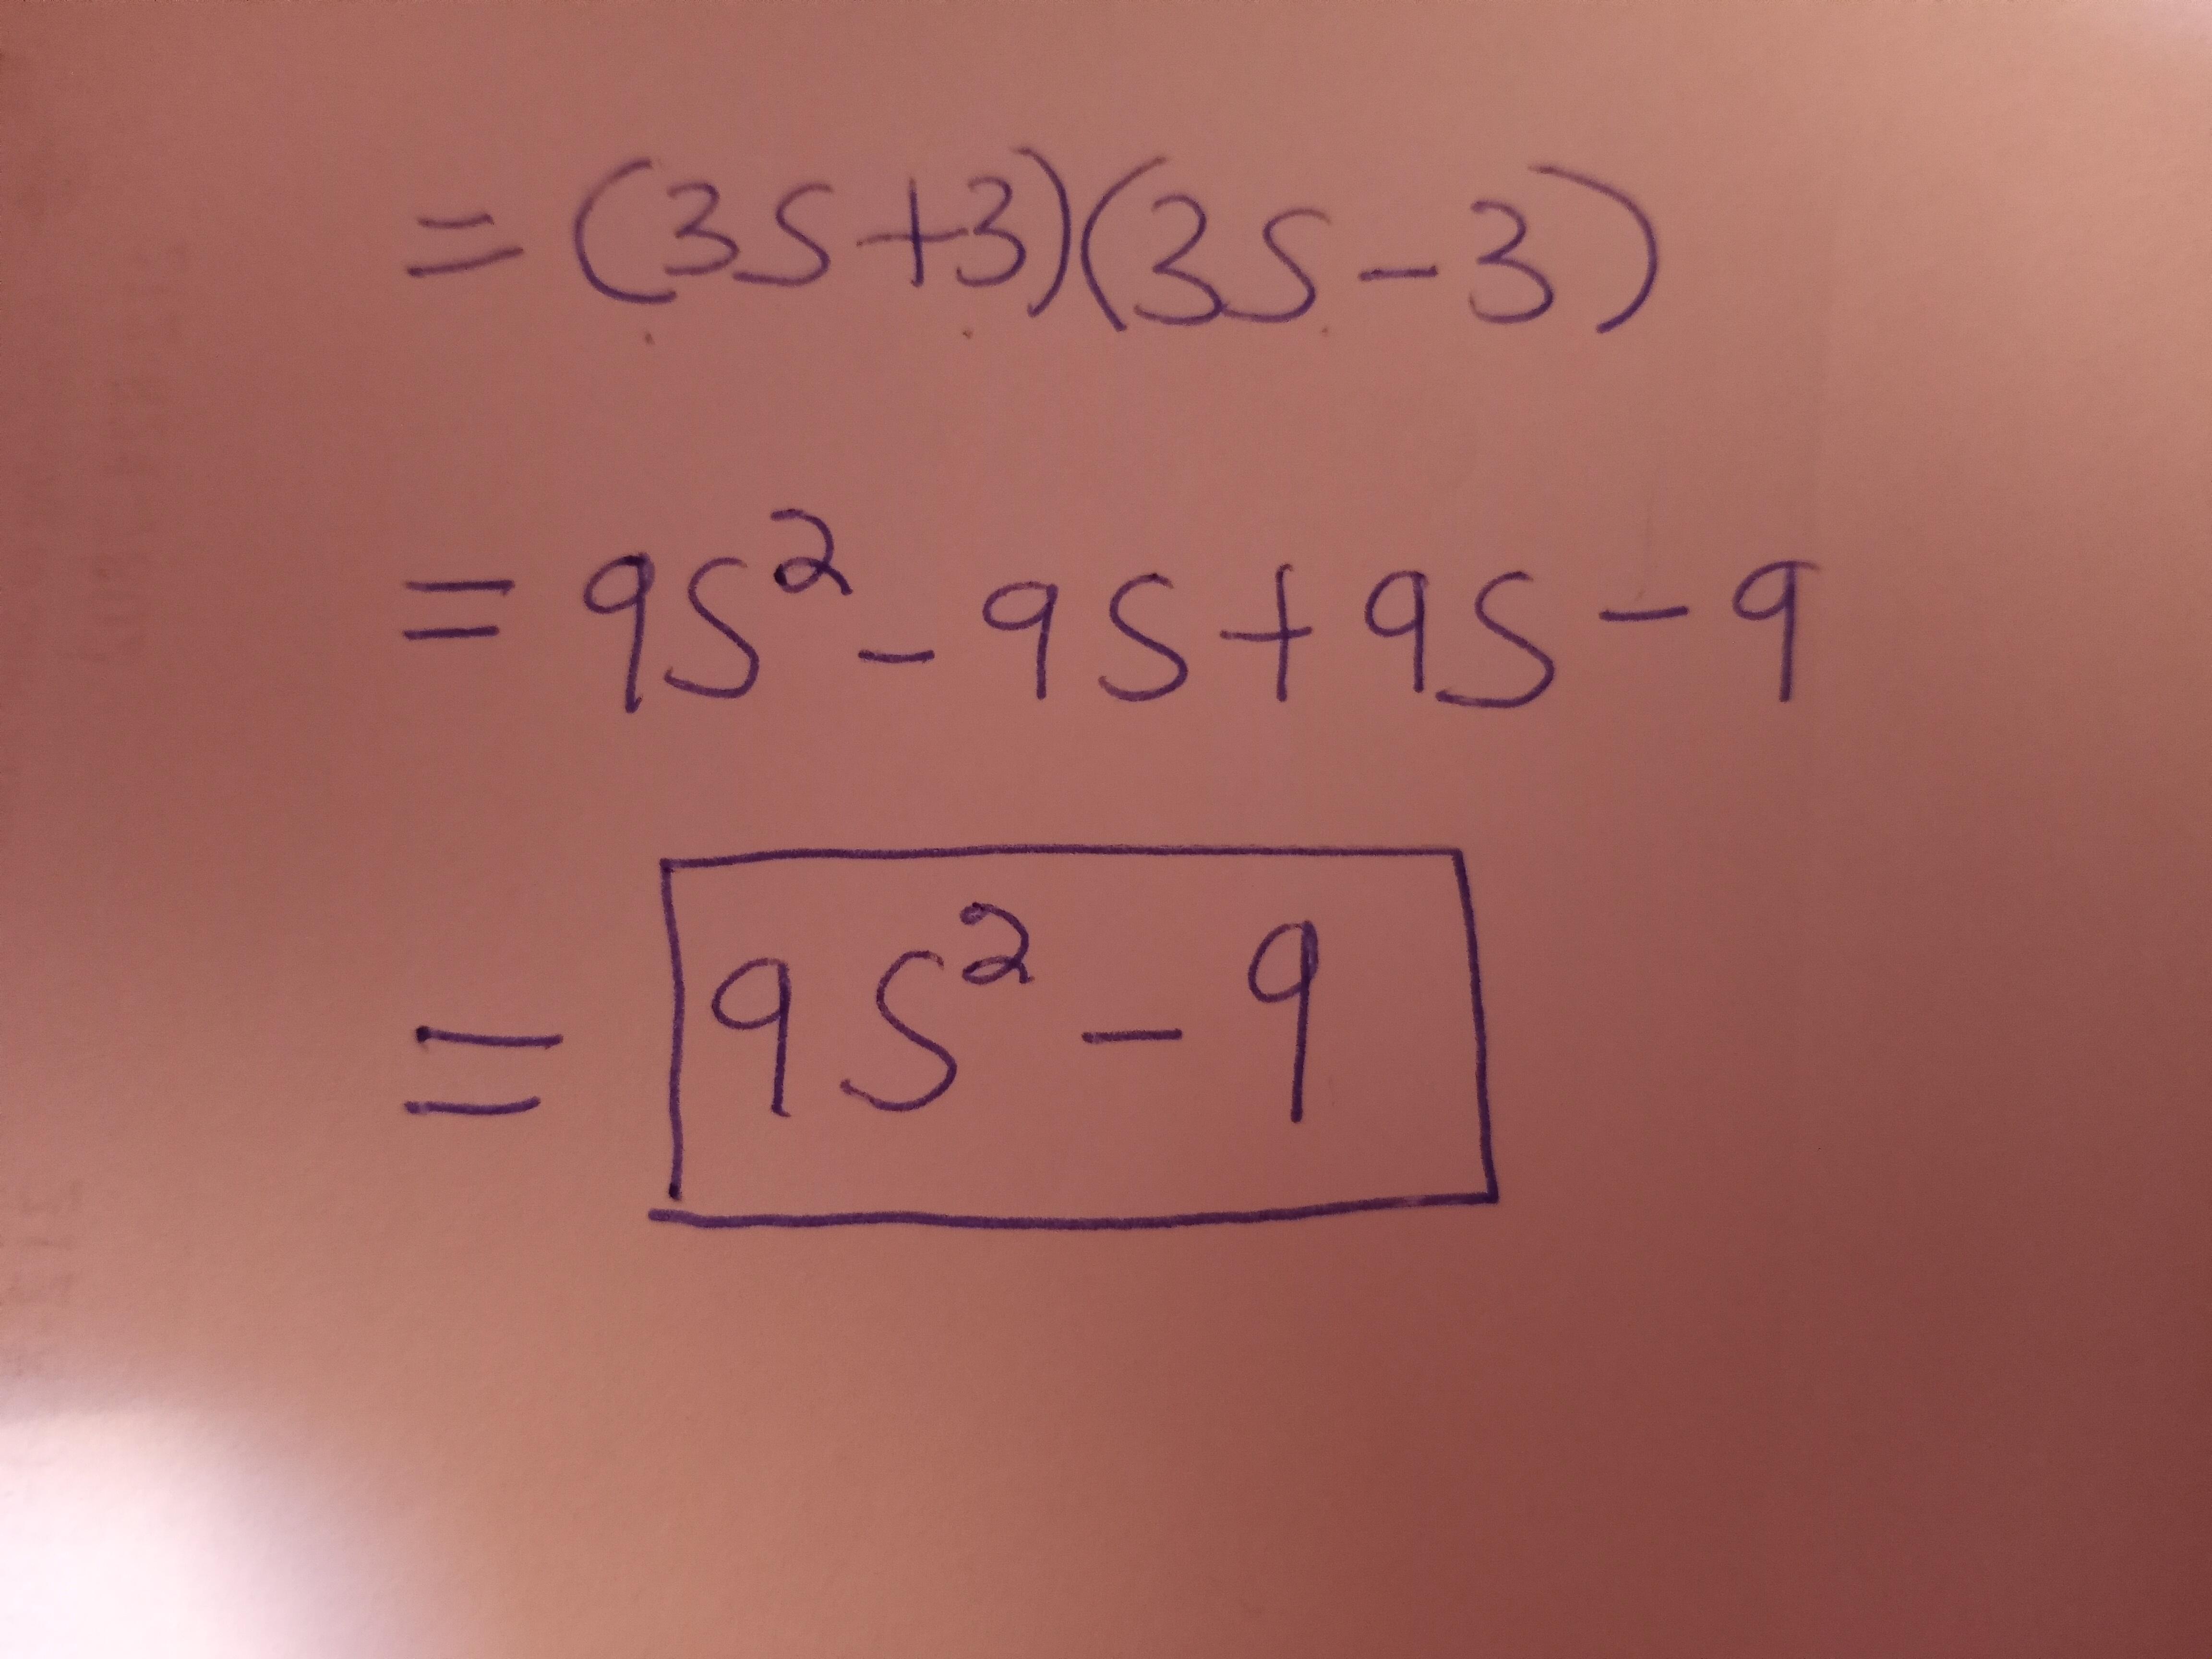 = (3S+3)(3S-3)
= 9S² - 9S + 9S - 9
= 9S² - 9